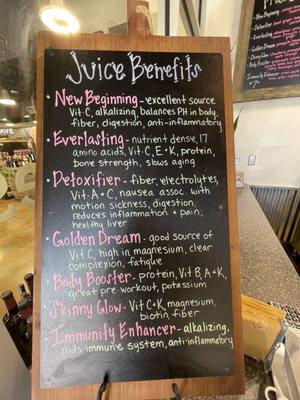 Juice Benefits
• New Beginning - excellent source
Vit-C, alkalizing, balances PH in body,
fiber, digestion, anti-inflammatory
• Everlasting - nutrient dense, 17
amino acids, Vit-C, E+K, protein,
bone strength, slows aging
• Detoxifier - fiber, electrolytes,
Vit-A+C, nausea assoc. with
motion sickness, digestion,
reduces inflammation + pain,
healthy liver
• Golden Dream - good source of
Vit C, high in magnesium, clear
complexion, fatigue
• Body Booster - protein, Vit B, A+K,
great pre-workout, potassium
• Skinny Glow - Vit C+K, magnesium,
biotin, fiber
• Immunity Enhancer - alkalizing,
aids immune system, anti-inflammatory
New Beginning
Everlasting
Detoxifier
Golden Dream
Body Booster
Skinny Glow
Immunity Enhancer